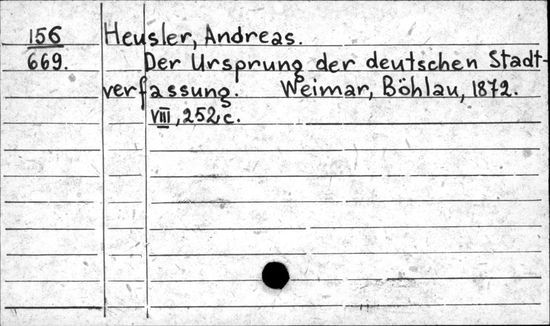 156 Heusler, Andreas.
669. Der Ursprung der deutschen Stadt-
verfassung. Weimar, Böhlau, 1872.
VIII, 252 c.